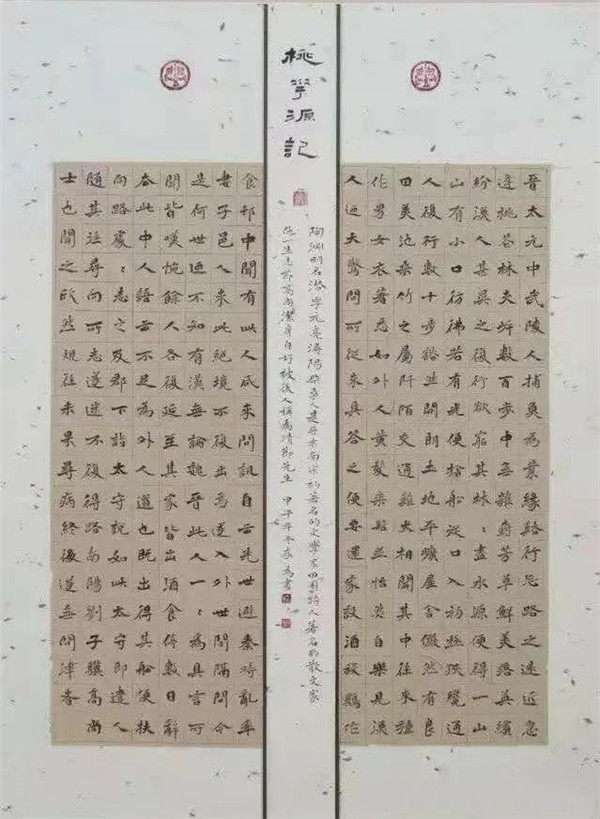 桃花源記
晋太元中武陵人捕魚為業緣谿行忘路之遠近忽
逢桃花林夾岸數百步中無雜樹芳草鮮美落英繽
紛漁人甚異之復行欲窮其林：盡水源便得一山
山有小口彷彿若有光便捨船從口入初極狹纔通
人復行數十步豁然開朗土地平曠屋舍儼然有良
田美池桑竹之屬阡陌交通雞犬相聞其中往來種
作男女衣著悉如外人黃髮垂髫並怡然自樂見漁
人迺大驚問所從來具答之便要還家設酒殺鷄作
陶淵明名潛字元亮潯陽柴桑人是晉末南宋初著名的文學家田園詩人著名的散文家
一生志節高尚潔身自好被後人稱為靖節先生 甲午年 春 為書
食邨中聞有此人咸來問訊自云先世避秦時亂率
妻子邑人來此絕境不復出焉遂入外世間隔問今
是何世迺不知有漢無論魏晉此人一：為具言所
聞皆嘆惋餘人各復延至其家皆出酒食停數日辭
去此中人語云不足為外人道也既出得其船便扶
向路處：志之及郡下詣太守說如此太守即遣人
隨其往尋向所志遂迷不復得路南陽劉子驥高尚
士也聞之欣然規往未果尋病終後遂無問津者